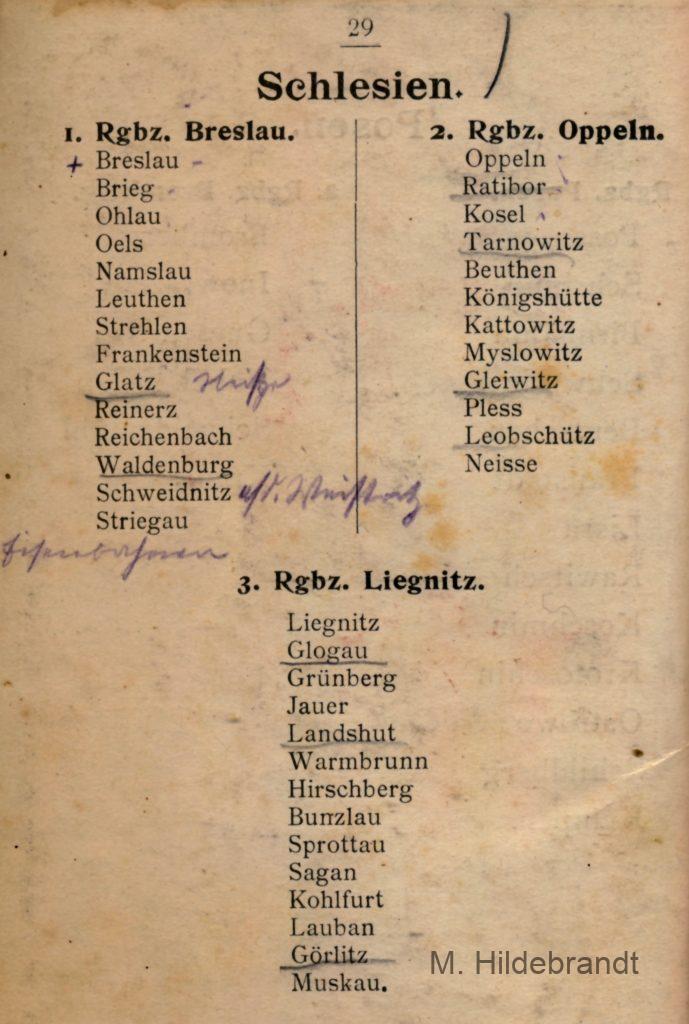 29
Schlesien.
1. Rgbz. Breslau.
+ Breslau -
Brieg
Ohlau
Oels
Namslau
Leuthen
Strehlen
Frankenstein
Glatz Neiße
Reinerz
Reichenbach
Waldenburg
Schweidnitz a/d. Weistritz
Striegau
Eisenbahnen
2. Rgbz. Oppeln.
Oppeln
Ratibor
Kosel
Tarnowitz
Beuthen
Königshütte
Kattowitz
Myslowitz
Gleiwitz
Pless
Leobschütz
Neisse
3. Rgbz. Liegnitz.
Liegnitz
Glogau
Grünberg
Jauer
Landshut
Warmbrunn
Hirschberg
Bunzlau
Sprottau
Sagan
Kohlfurt
Lauban
Görlitz
Muskau.
M. Hildebrandt